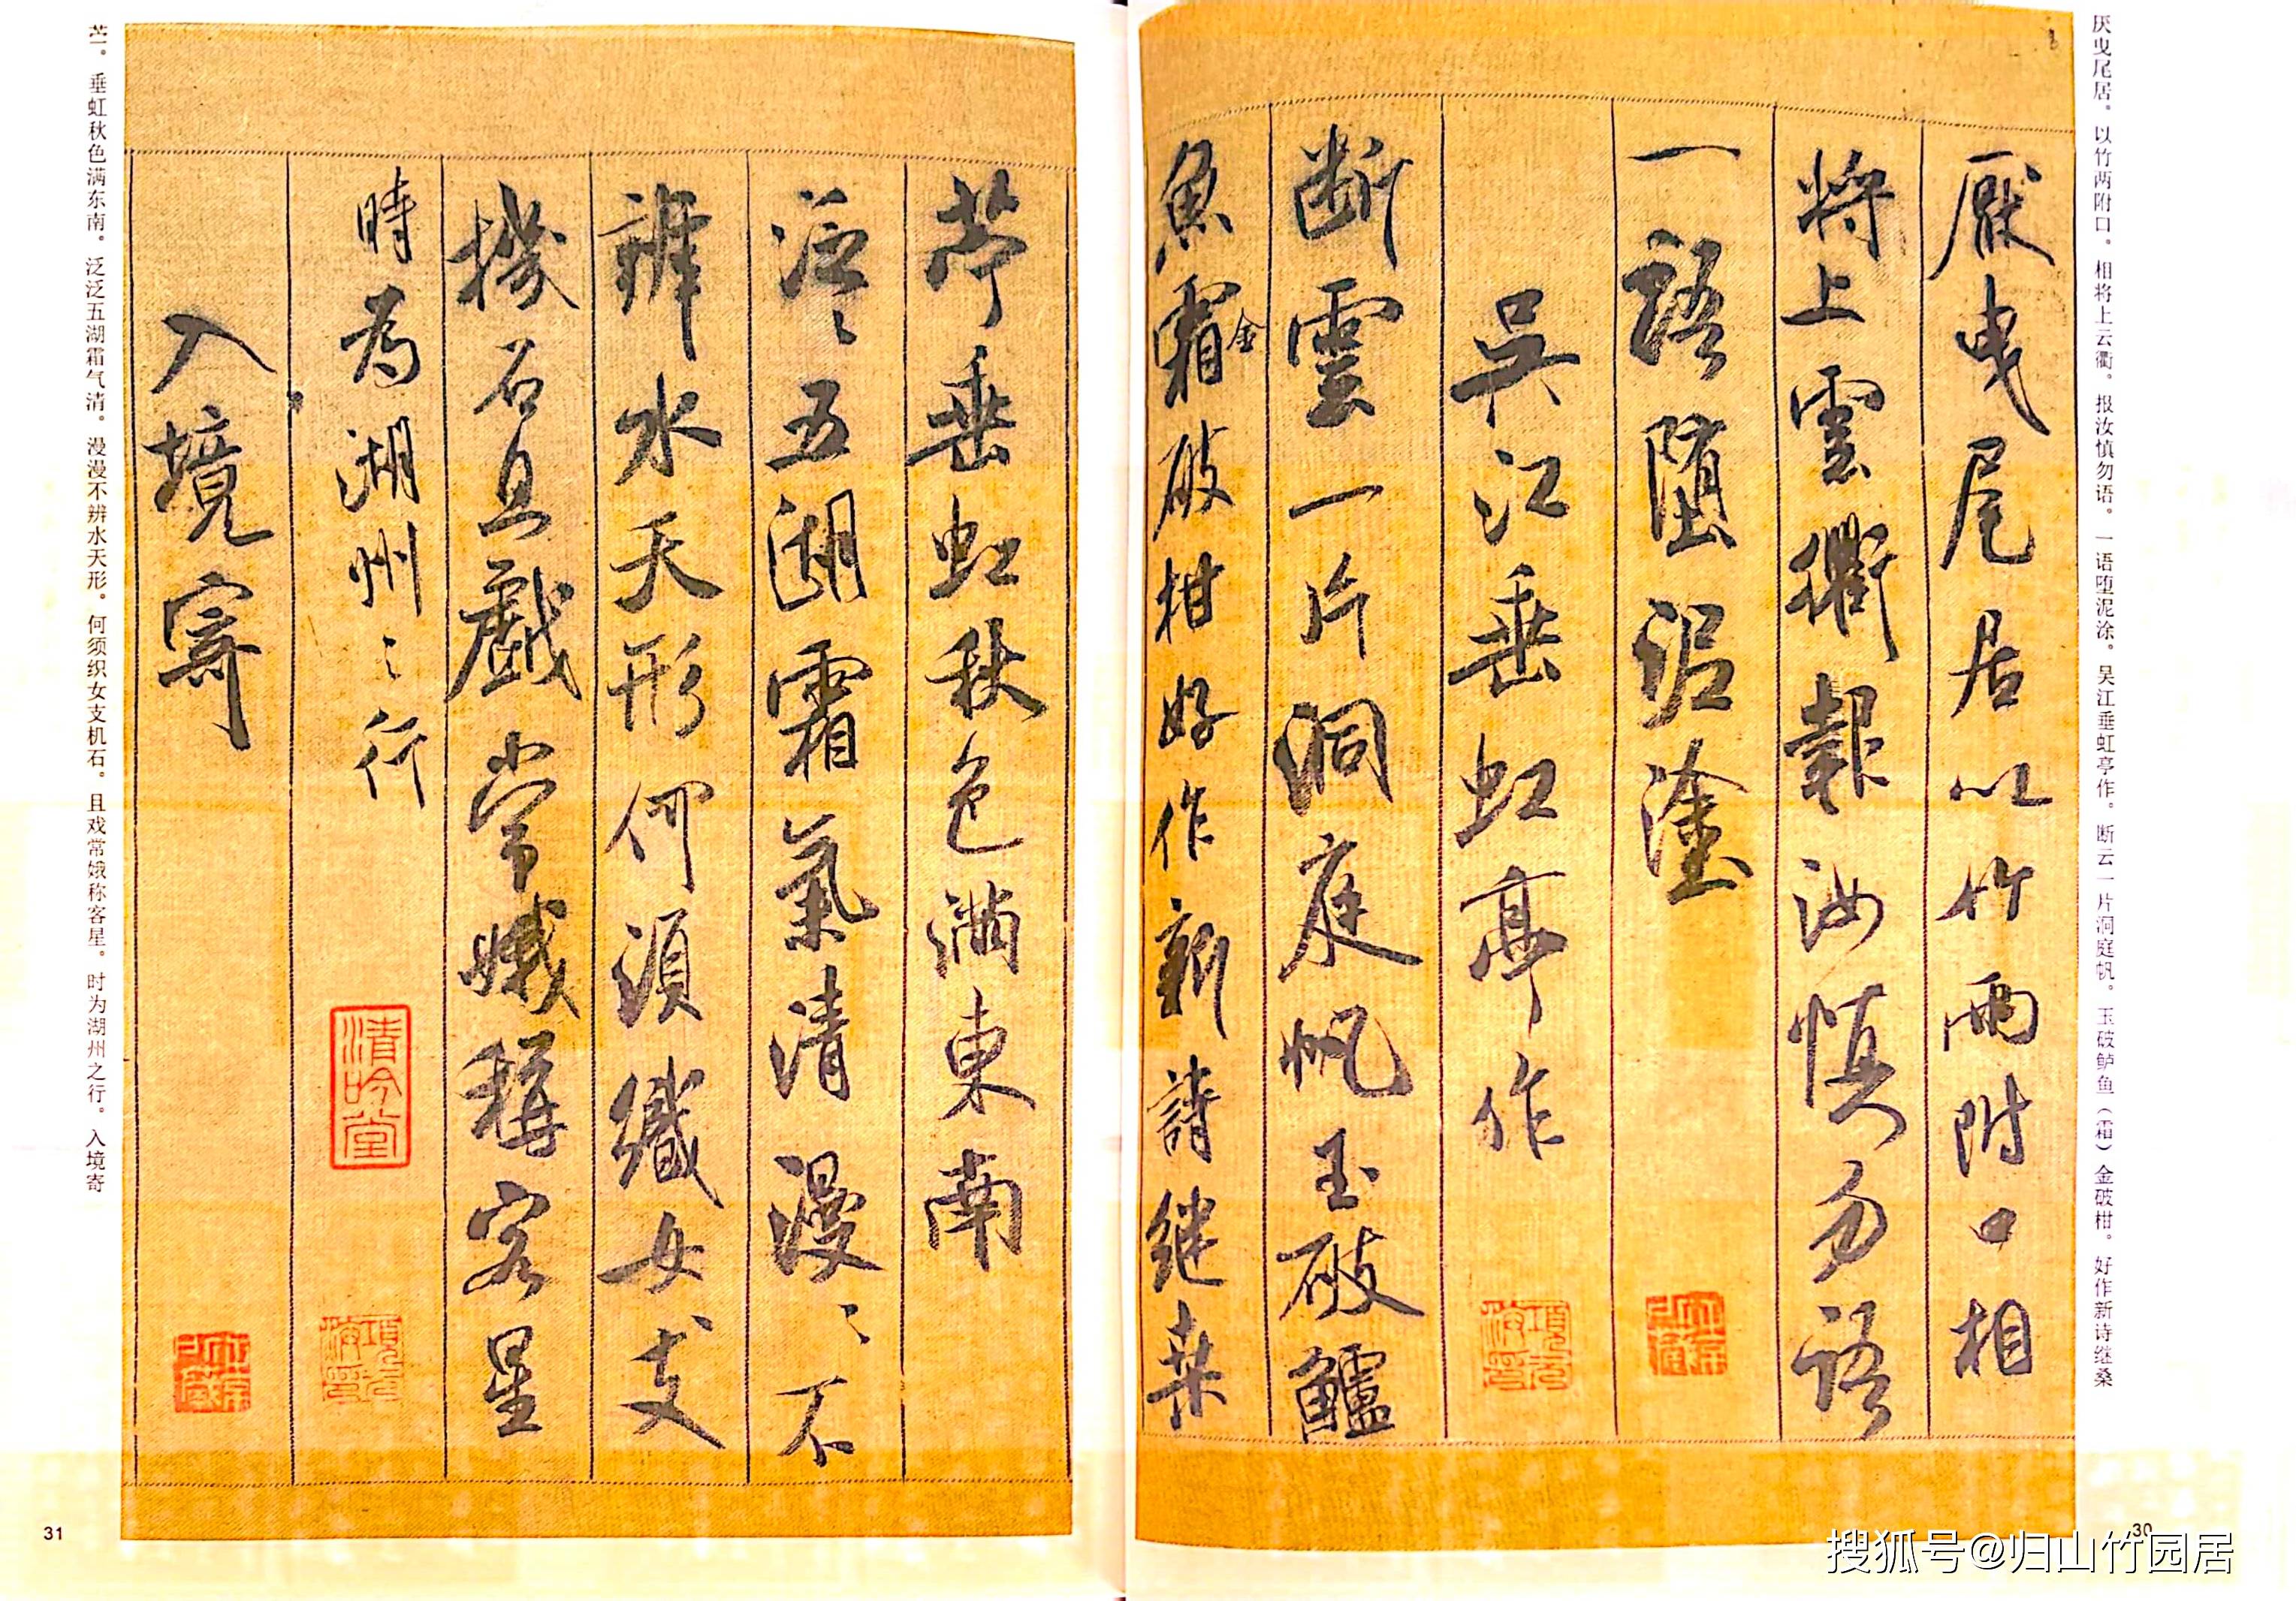 厌曳尾居。以竹两附口。相将上云衢。报汝慎勿语。一语堕泥涂。吴江垂虹亭作。断云一片洞庭帆。玉破鲈鱼（霜）金破柑。好作新诗继桑
厭曳尾居以竹兩附口相
將上雲衢報汝慎勿語
一語墮泥塗
吳江垂虹亭作
斷雲一片洞庭帆玉破鱸
魚霜破柑好作新詩継桒
金
30
苎。垂虹秋色满东南。泛泛五湖霜气清。漫漫不辨水天形。何须织女支机石。且戏常娥称客星。时为湖州之行。入境寄
苧垂虹秋色滿東南
泛〻五湖霜氣清漫〻不
辨水天形何須織女支
機石且戲常娥稱客星
時為湖州之行
清吟堂
入境寄
31
搜狐号@归山竹园居